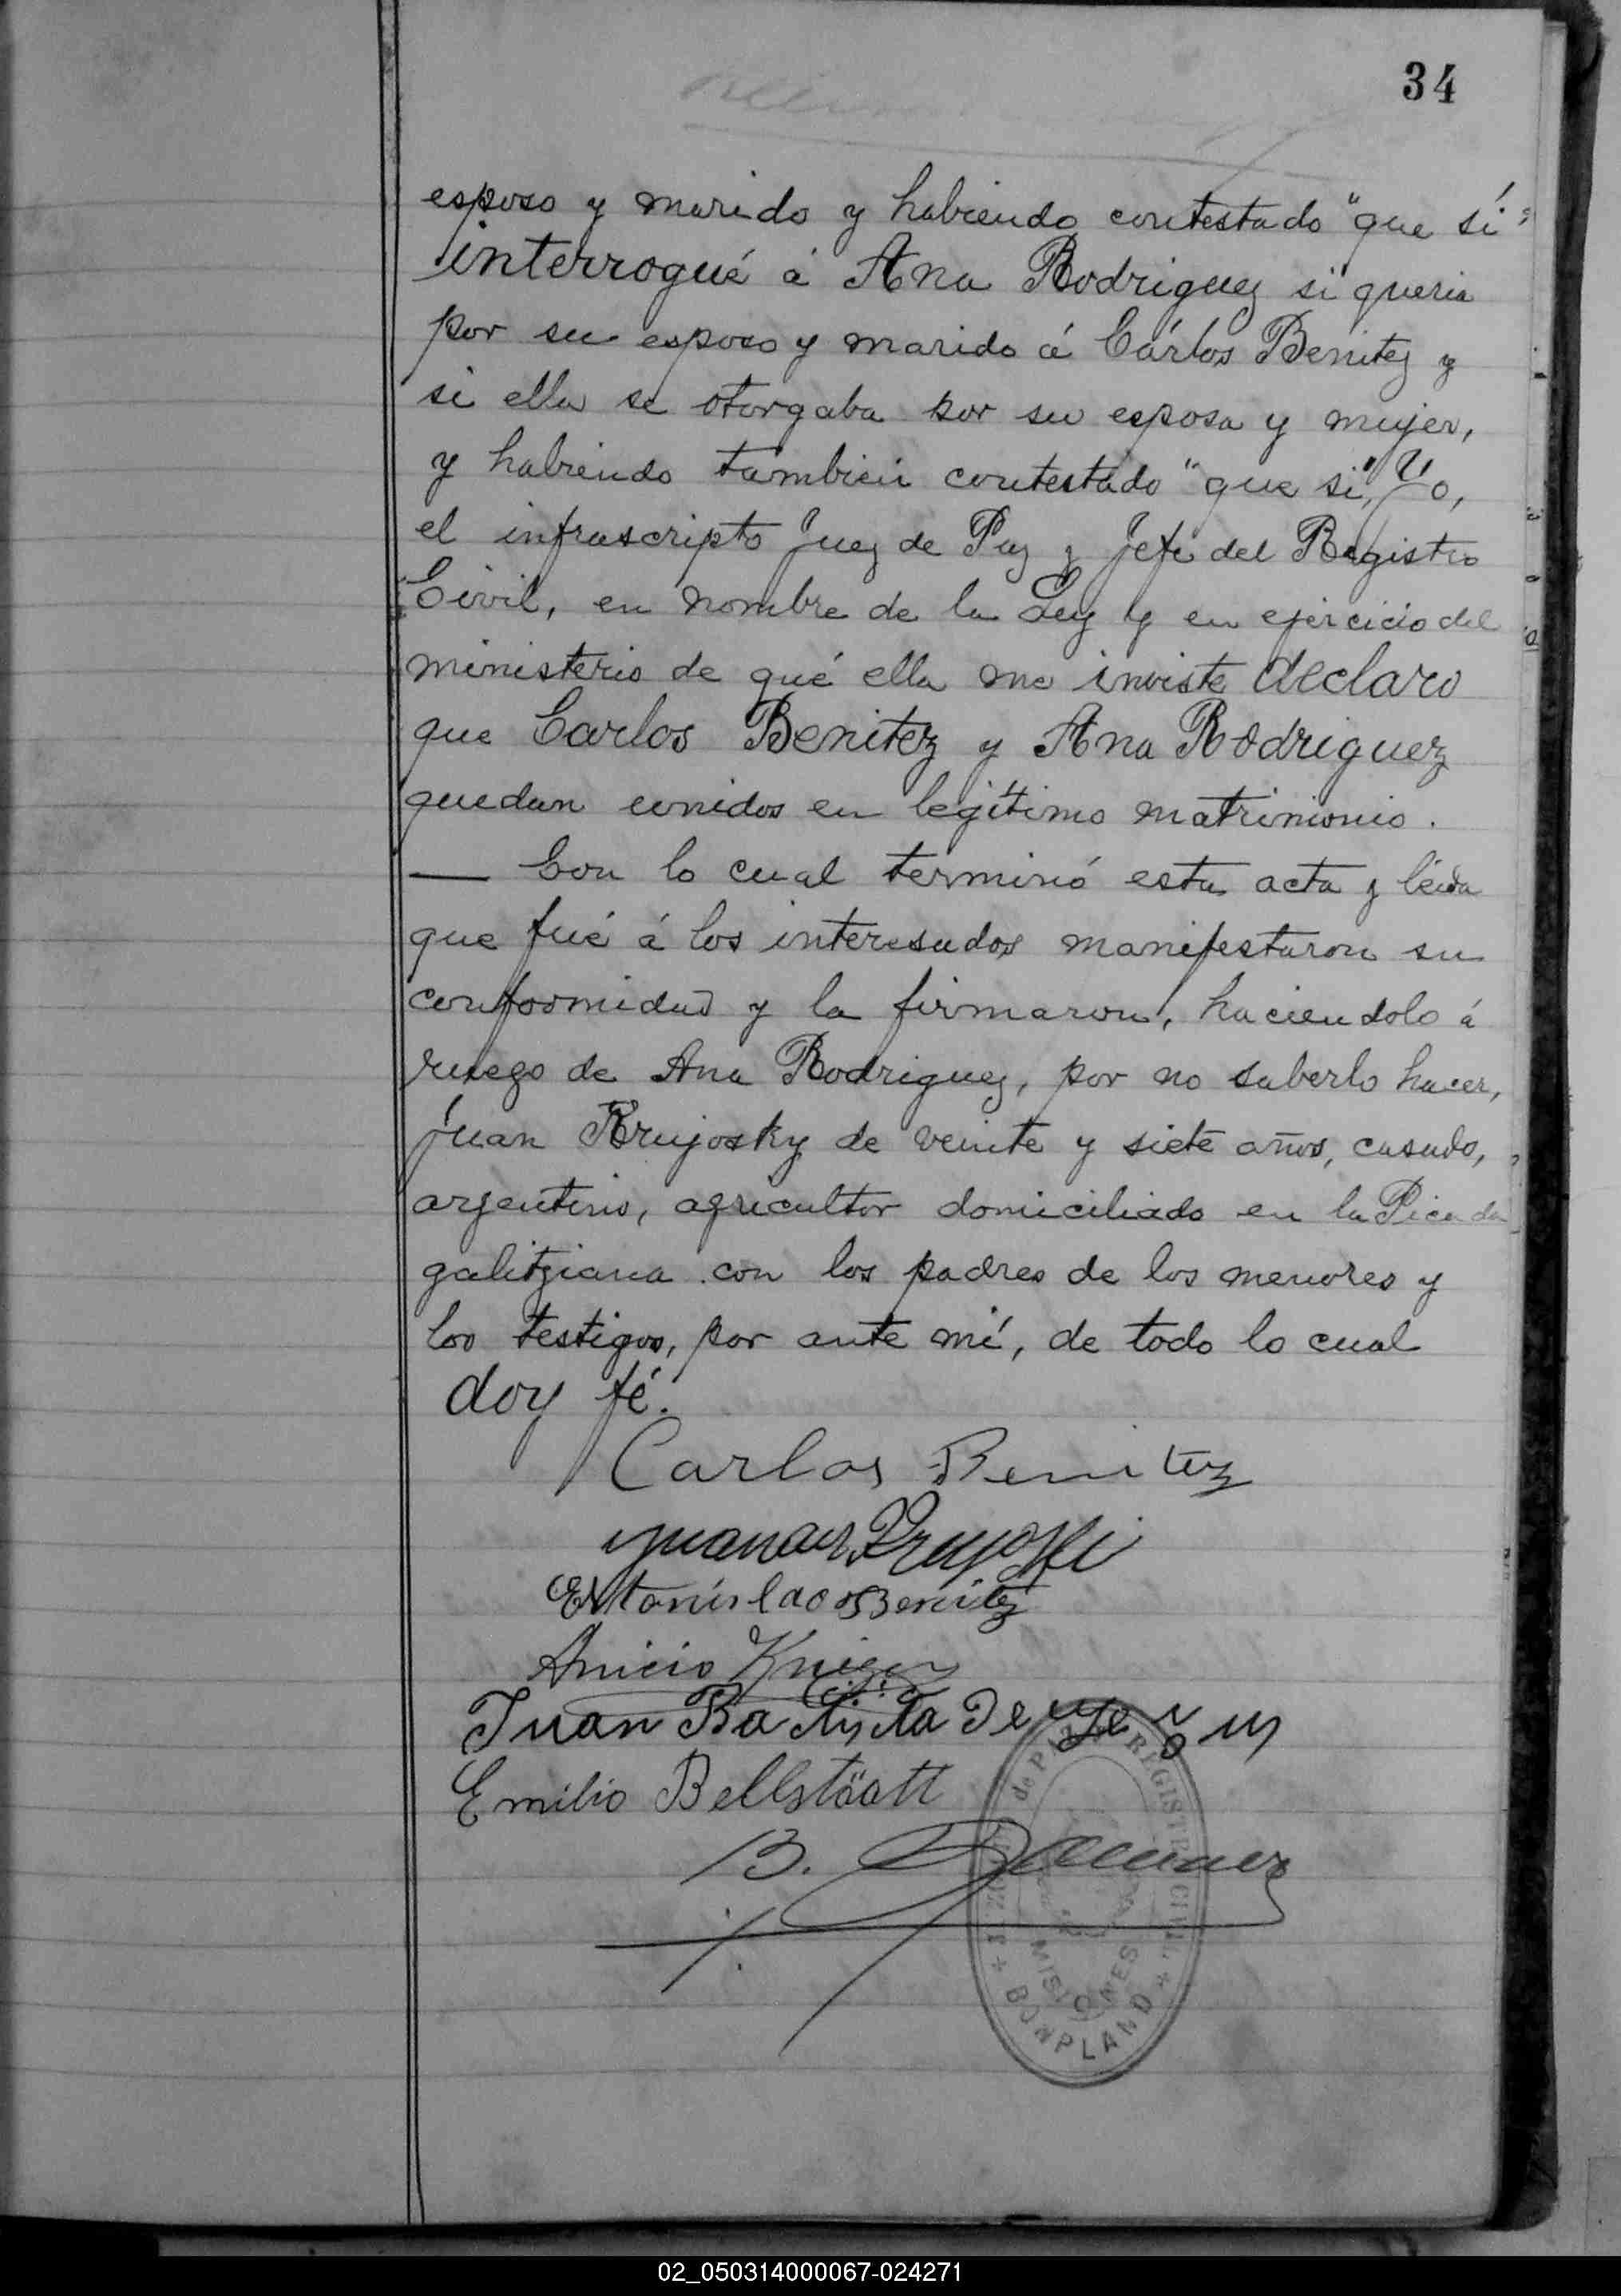 34
esposo y marido y habiendo contestado "que sí"
interrogué á Ana Rodriguez si queria
por su esposo y marido á Cárlos Benitez y
si ella se otorgaba por su esposa y mujer,
y habiendo tambien contestado "que si", Yo,
el infrascripto Juez de Paz y Jefe del Registro
Civil, en nombre de la Ley y en ejercicio del
ministerio de qué ella me inviste declaro
que Carlos Benitez y Ana Rodriguez
quedan unidos en legítimo matrimonio.
— Con lo cual terminó esta acta y leida
que fué á los interesados manifestaron su
conformidad y la firmaron, haciendolo á
ruego de Ana Rodriguez, por no saberlo hacer,
Juan Krujosky de veinte y siete años, casado,
argentino, agricultor domiciliado en la Picada
galitziana con los padres de los menores y
los testigos, por ante mí, de todo lo cual
doy fé.
Carlos Benitez
Estanislao Benitez
Anicio
Juan Batista De
Emilio Bellstäatt
B.
de PAZ REGISTRO CIVIL
MISIONES
BONPLAND
02_050314000067-024271